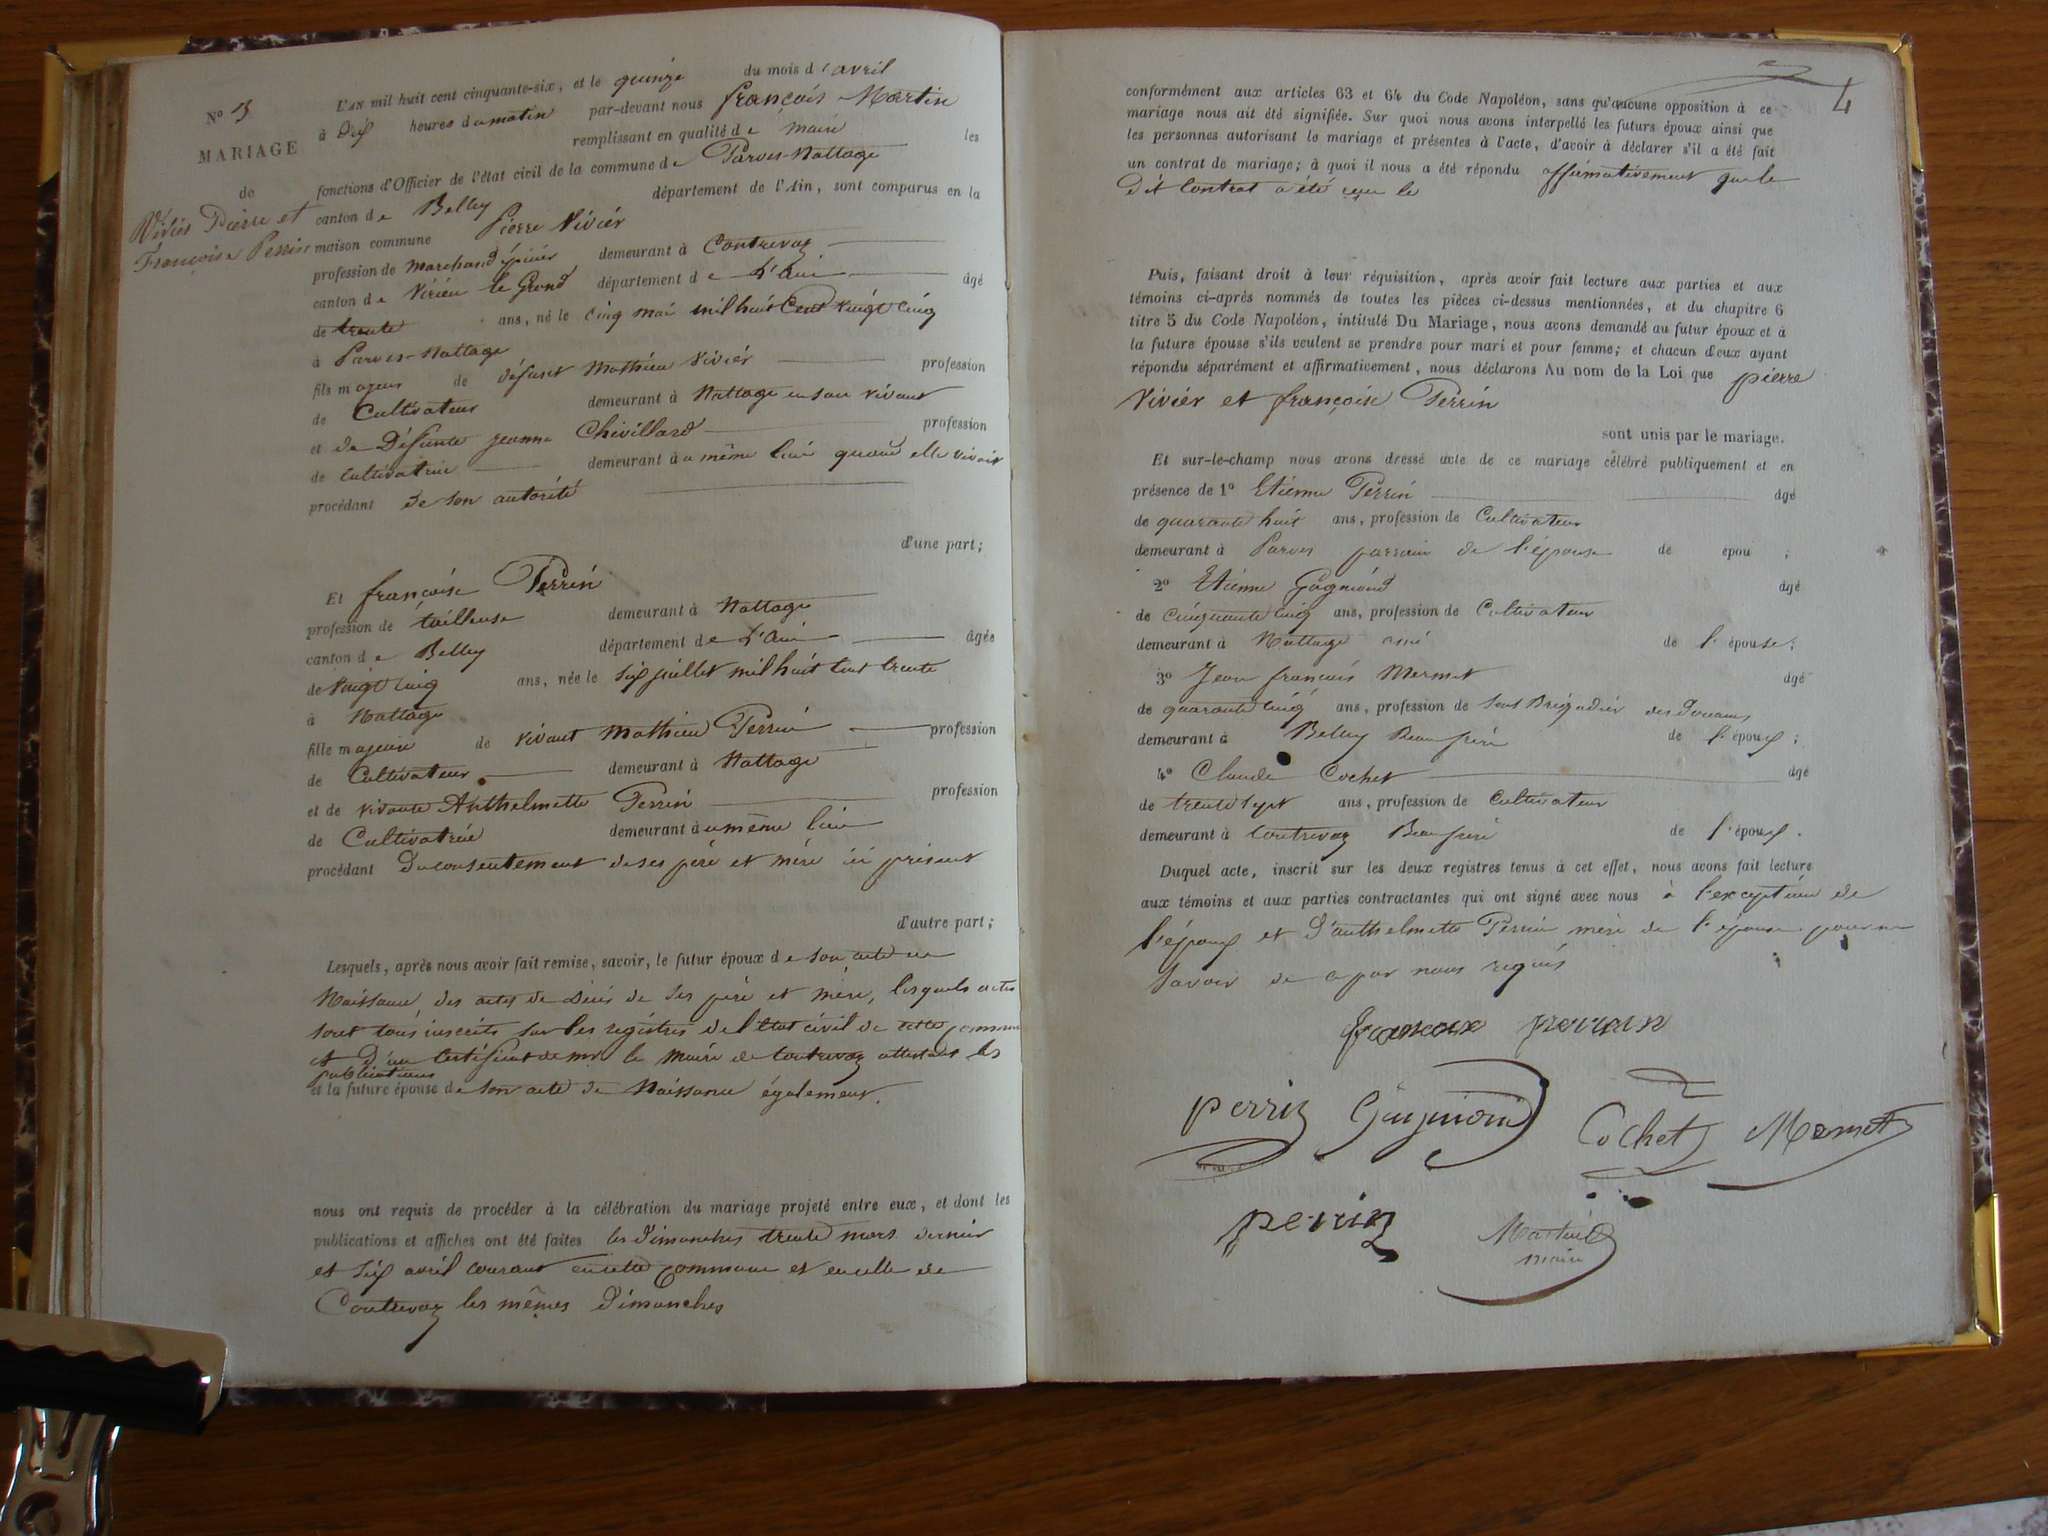 L'AN mil huit cent cinquante-six, et le quinze du mois d'avril
N° 3
à Dix heures du matin par-devant nous françois Martin
MARIAGE
remplissant en qualité de maire les
de
fonctions d'Officier de l'état civil de la commune de Parves-Nattage
Viviér Pierre et
canton de Belley département de l'Ain, sont comparus en la
Françoise Perrin
maison commune Pierre Viviér
profession de marchand épiciér demeurant à Contrevoz
canton de Virieu le Grand département de L'ain âgé
de trente ans, né le cinq mai mil huit Cent vingt cinq
à Parves-Nattage
fils majeur de défunt Mathieu Viviér profession
de Cultivateur demeurant à Nattage en son vivant
et de Défunte jeanne Chivillard profession
de cultivatrice demeurant au même lieu quand elle vivait
procédant de son autorité
d'une part;
Et françoise Perrin
profession de tailleuse demeurant à Nattage
canton de Belley département de L'ain âgée
de vingt cinq ans, née le six juillet mil huit cent trente
à Nattage
fille majeure de vivant Mathieu Perrin profession
de Cultivateur demeurant à Nattage
et de vivante Anthelmette Perrin profession
de Cultivatrice demeurant au même lieu
procédant Du consentement de ses pére et mére ici présent
d'autre part;
Lesquels, après nous avoir fait remise, savoir, le futur époux de son acte de
Naissance des actes de Décès de ses pére et mére, lesquels actes
sont tous inscrits sur les registres de l'état civil de cette commune
et D'un Certificat de mr le maire de Contrevoz attestant les
publications
et la future épouse de son acte de Naissance également.
nous ont requis de procéder à la célébration du mariage projeté entre eux, et dont les
publications et affiches ont été faites les Dimanches trente mars dernier
et six avril courant en cette commune et en celle de
Contrevoz les mêmes Dimanches
4
conformément aux articles 63 et 64 du Code Napoléon, sans qu'aucune opposition à ce
mariage nous ait été signifiée. Sur quoi nous avons interpellé les futurs époux ainsi que
les personnes autorisant le mariage et présentes à l'acte, d'avoir à déclarer s'il a été fait
un contrat de mariage; à quoi il nous a été répondu affirmativement que le
Dit Contrat a été reçu le
Puis, faisant droit à leur réquisition, après avoir fait lecture aux parties et aux
témoins ci-après nommés de toutes les pièces ci-dessus mentionnées, et du chapitre 6
titre 5 du Code Napoléon, intitulé Du Mariage, nous avons demandé au futur époux et à
la future épouse s'ils veulent se prendre pour mari et pour femme; et chacun d'eux ayant
répondu séparément et affirmativement, nous déclarons Au nom de la Loi que pierre
Viviér et françoise Perrin
sont unis par le mariage.
Et sur-le-champ nous avons dressé acte de ce mariage célébré publiquement et en
présence de 1° Etienne Perrin âgé
de quarante huit ans, profession de Cultivateur
demeurant à Parves parrain de l'épouse de epou ;
2° Etienne Gagniond âgé
de cinquante cinq ans, profession de Cultivateur
demeurant à Nattage ami de l'épouse;
3° Jean françois Mermet âgé
de quarante cinq ans, profession de Sous Brigadier des Douanes
demeurant à Belley Beau frére de l'époux;
4° Claude Cochet âgé
de trente sept ans, profession de Cultivateur
demeurant à Contrevoz Beau frére de l'époux.
Duquel acte, inscrit sur les deux registres tenus à cet effet, nous avons fait lecture
aux témoins et aux parties contractantes qui ont signé avec nous à l'exception de
l'époux et d'anthelmette Perrin mére de l'épouse pour ne
savoir de ce par nous requis
perrin Gagniond Cochet Mermet
perrin Martin
maire